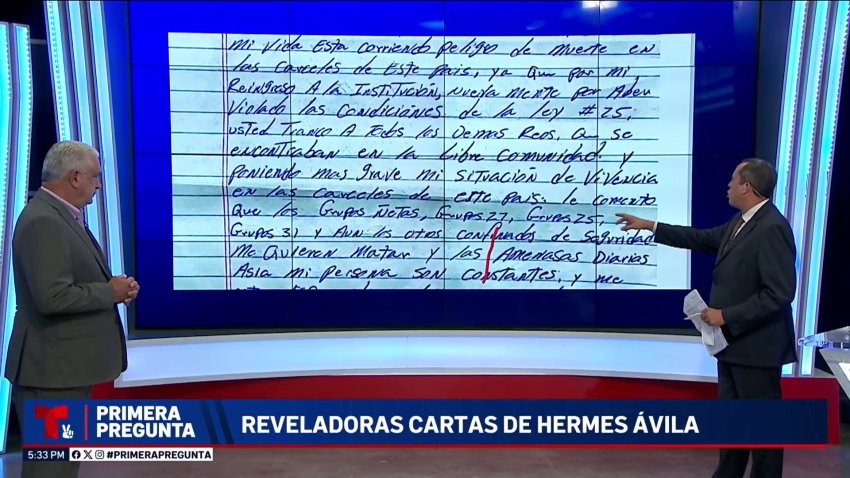 Mi Vida Esta corriendo Peligro de Muerte en
las Carceles de Este pais, ya que por mi
Reingreso A la Institución, nuevamente por Aber
Violado las Condiciónes de la Ley #25;
usted Tranco A Todos los Demas Reos, Que se
encontraban en la Libre Comunidad, y
poniendo mas grave mi situación de Vivencia
en las carceles de este pais. le comento
que los Grupos Ñetas, Grupos 27, Grupos 25,
Grupos 31 y Aun los otros confinados de Seguridad
Me Quieren Matar y las Amenasas Diarias
Asia mi persona son constantes, y me
PRIMERA
PREGUNTA
REVELADORAS CARTAS DE HERMES ÁVILA
5:33 PM #PRIMERAPREGUNTA